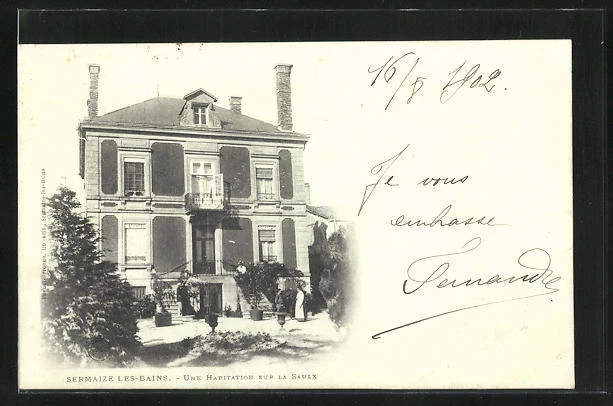 16/8 1902.
Je vous
embrasse
Fernande
SERMAIZE LES-BAINS. - UNE HABITATION SUR LA SAULX